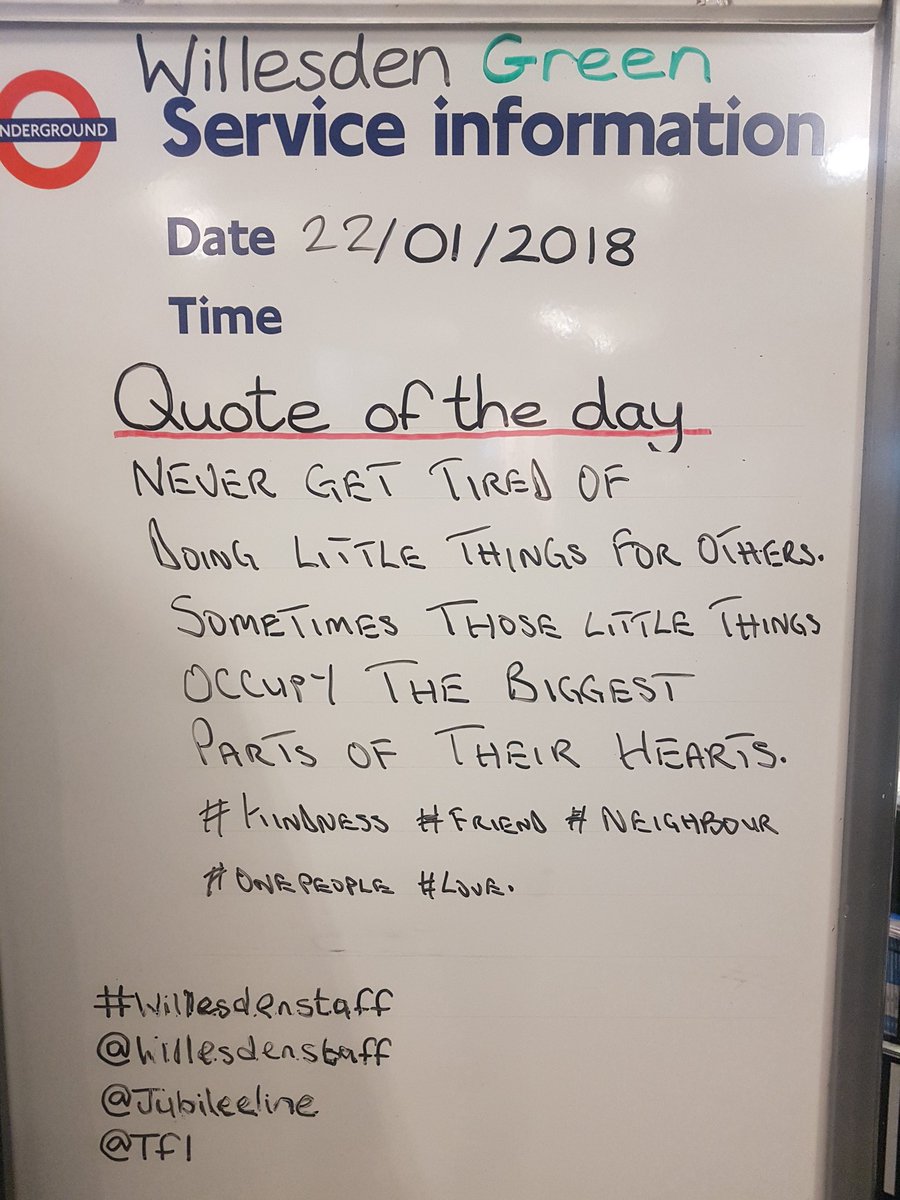 Willesden Green
NDERGROUND
Service information
Date 22/01/2018
Time
Quote of the day
NEVER GET TIRED OF
DOING LITTLE THINGS FOR OTHERS.
SOMETIMES THOSE LITTLE THINGS
OCCUPY THE BIGGEST
PARTS OF THEIR HEARTS.
#KINDNESS #FRIEND #NEIGHBOUR
#ONEPEOPLE #LOVE.
#Willesdenstaff
@Willesdenstaff
@Jubileeline
@Tfl